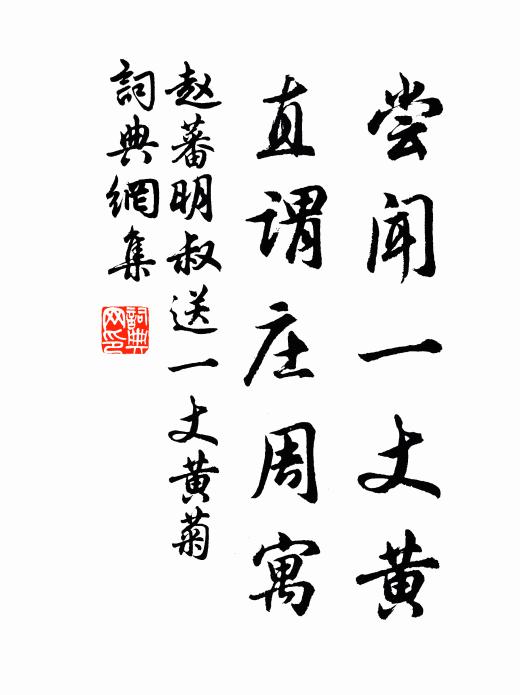 尝闻一丈黄
直谓庄周寓
赵蕃明叔送一丈黄菊
詞典網集
詞典网印